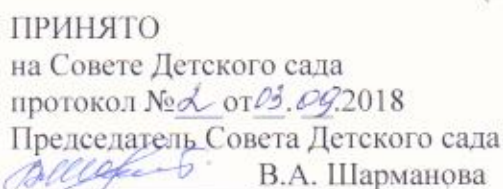 ПРИНЯТО
на Совете Детского сада
протокол №2 от 03.09.2018
Председатель Совета Детского сада
В.А. Шарманова